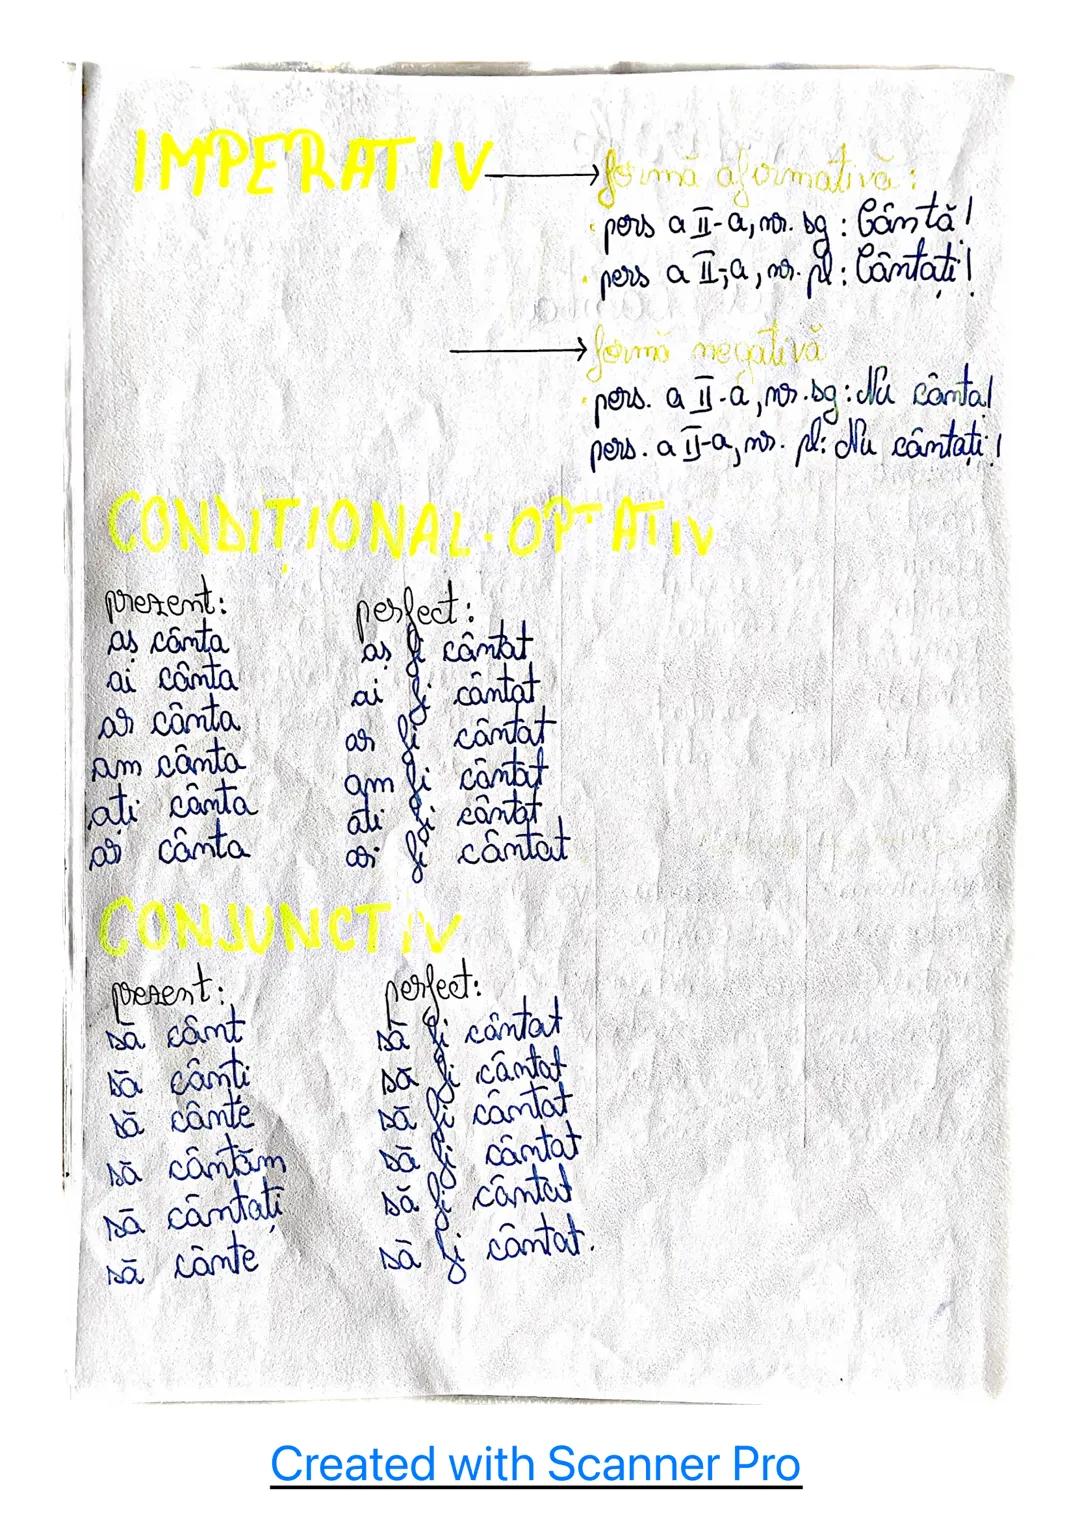 IMPERATIV → formă aformativă:
· pers a II-a, nr. sg: Cântă!
· pers a II-a, nr. pl: Cântați!
→ formă negativă
· pers. a II-a, nr. sg: Nu cânta!
pers. a II-a, nr. pl: Nu cântați!
CONDIȚIONAL-OPTATIV
prezent: perfect:
aș cânta aș fi cântat
ai cânta ai fi cântat
ar cânta ar fi cântat
am cânta am fi cântat
ați cânta ați fi cântat
ar cânta ar fi cântat
CONJUNCTIV
prezent: perfect:
să cânt să fi cântat
să cânți să fi cântat
să cânte să fi cântat
să cântăm să fi cântat
să cântați să fi cântat
să cânte să fi cântat.
Created with Scanner Pro